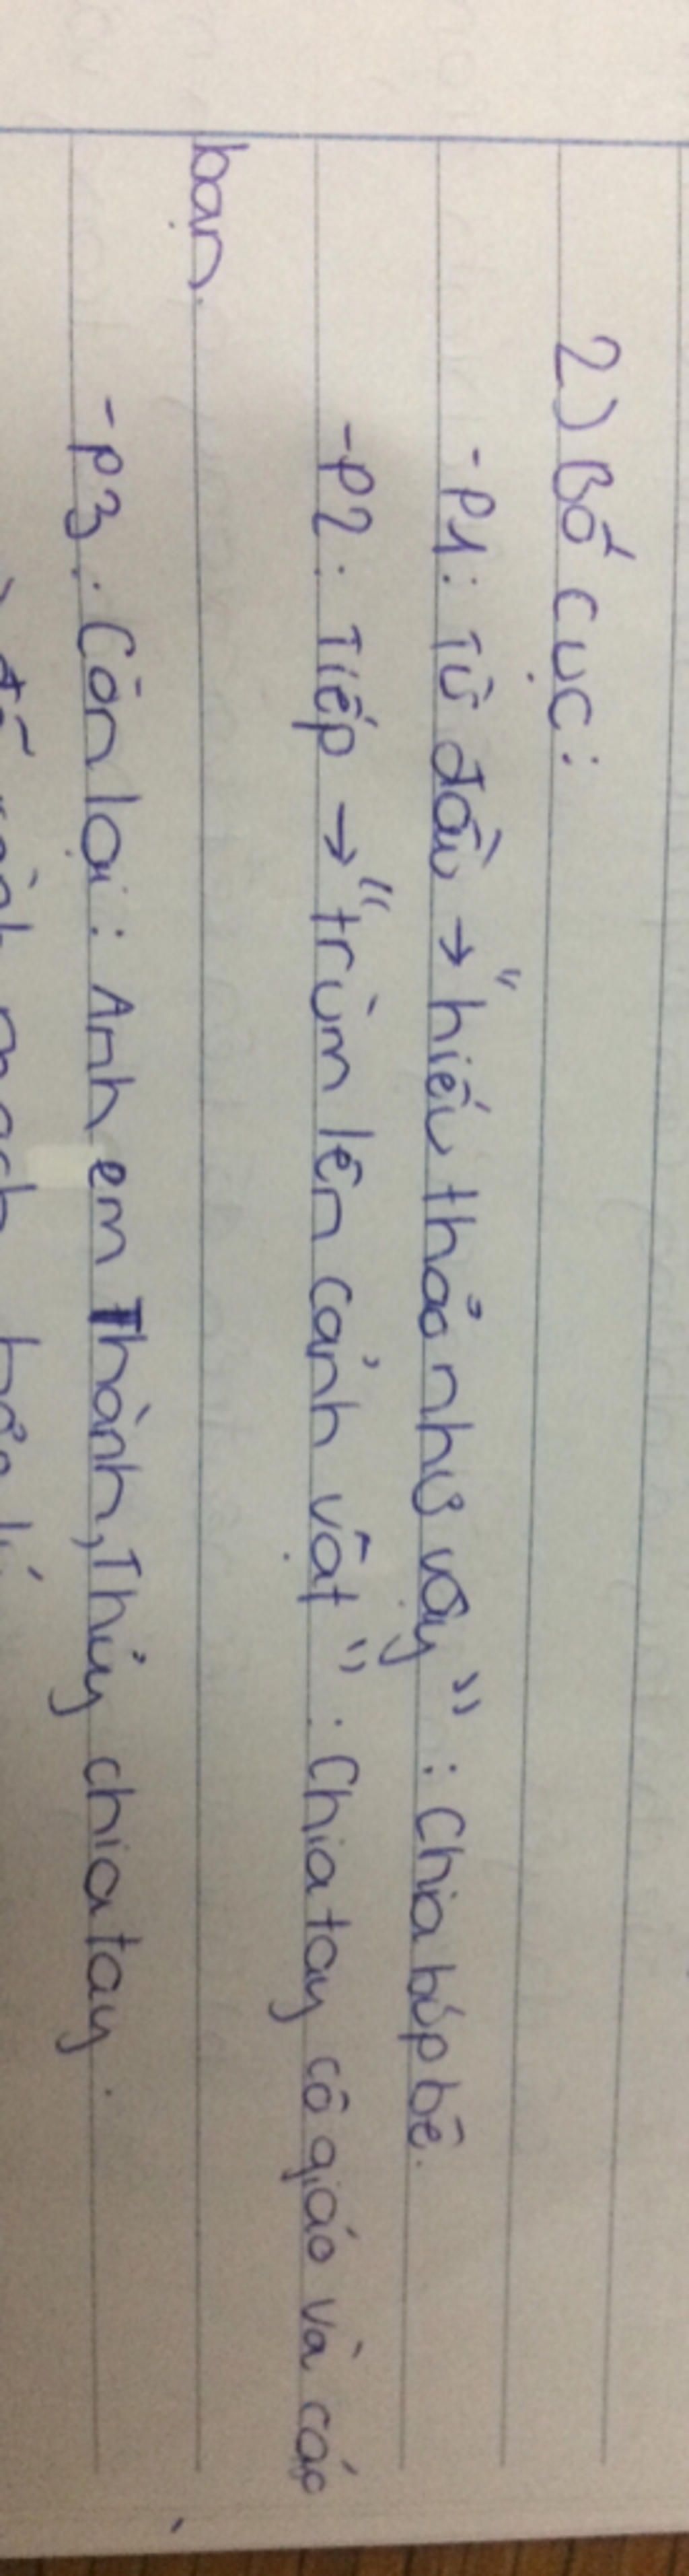 2) Bố cục:
- P1: Từ đầu → "hiếu thảo như vậy": Chia búp bê.
- P2: Tiếp → "trùm lên cảnh vật": Chia tay cô giáo và các
bạn.
- P3: Còn lại: Anh em Thành, Thủy chia tay.